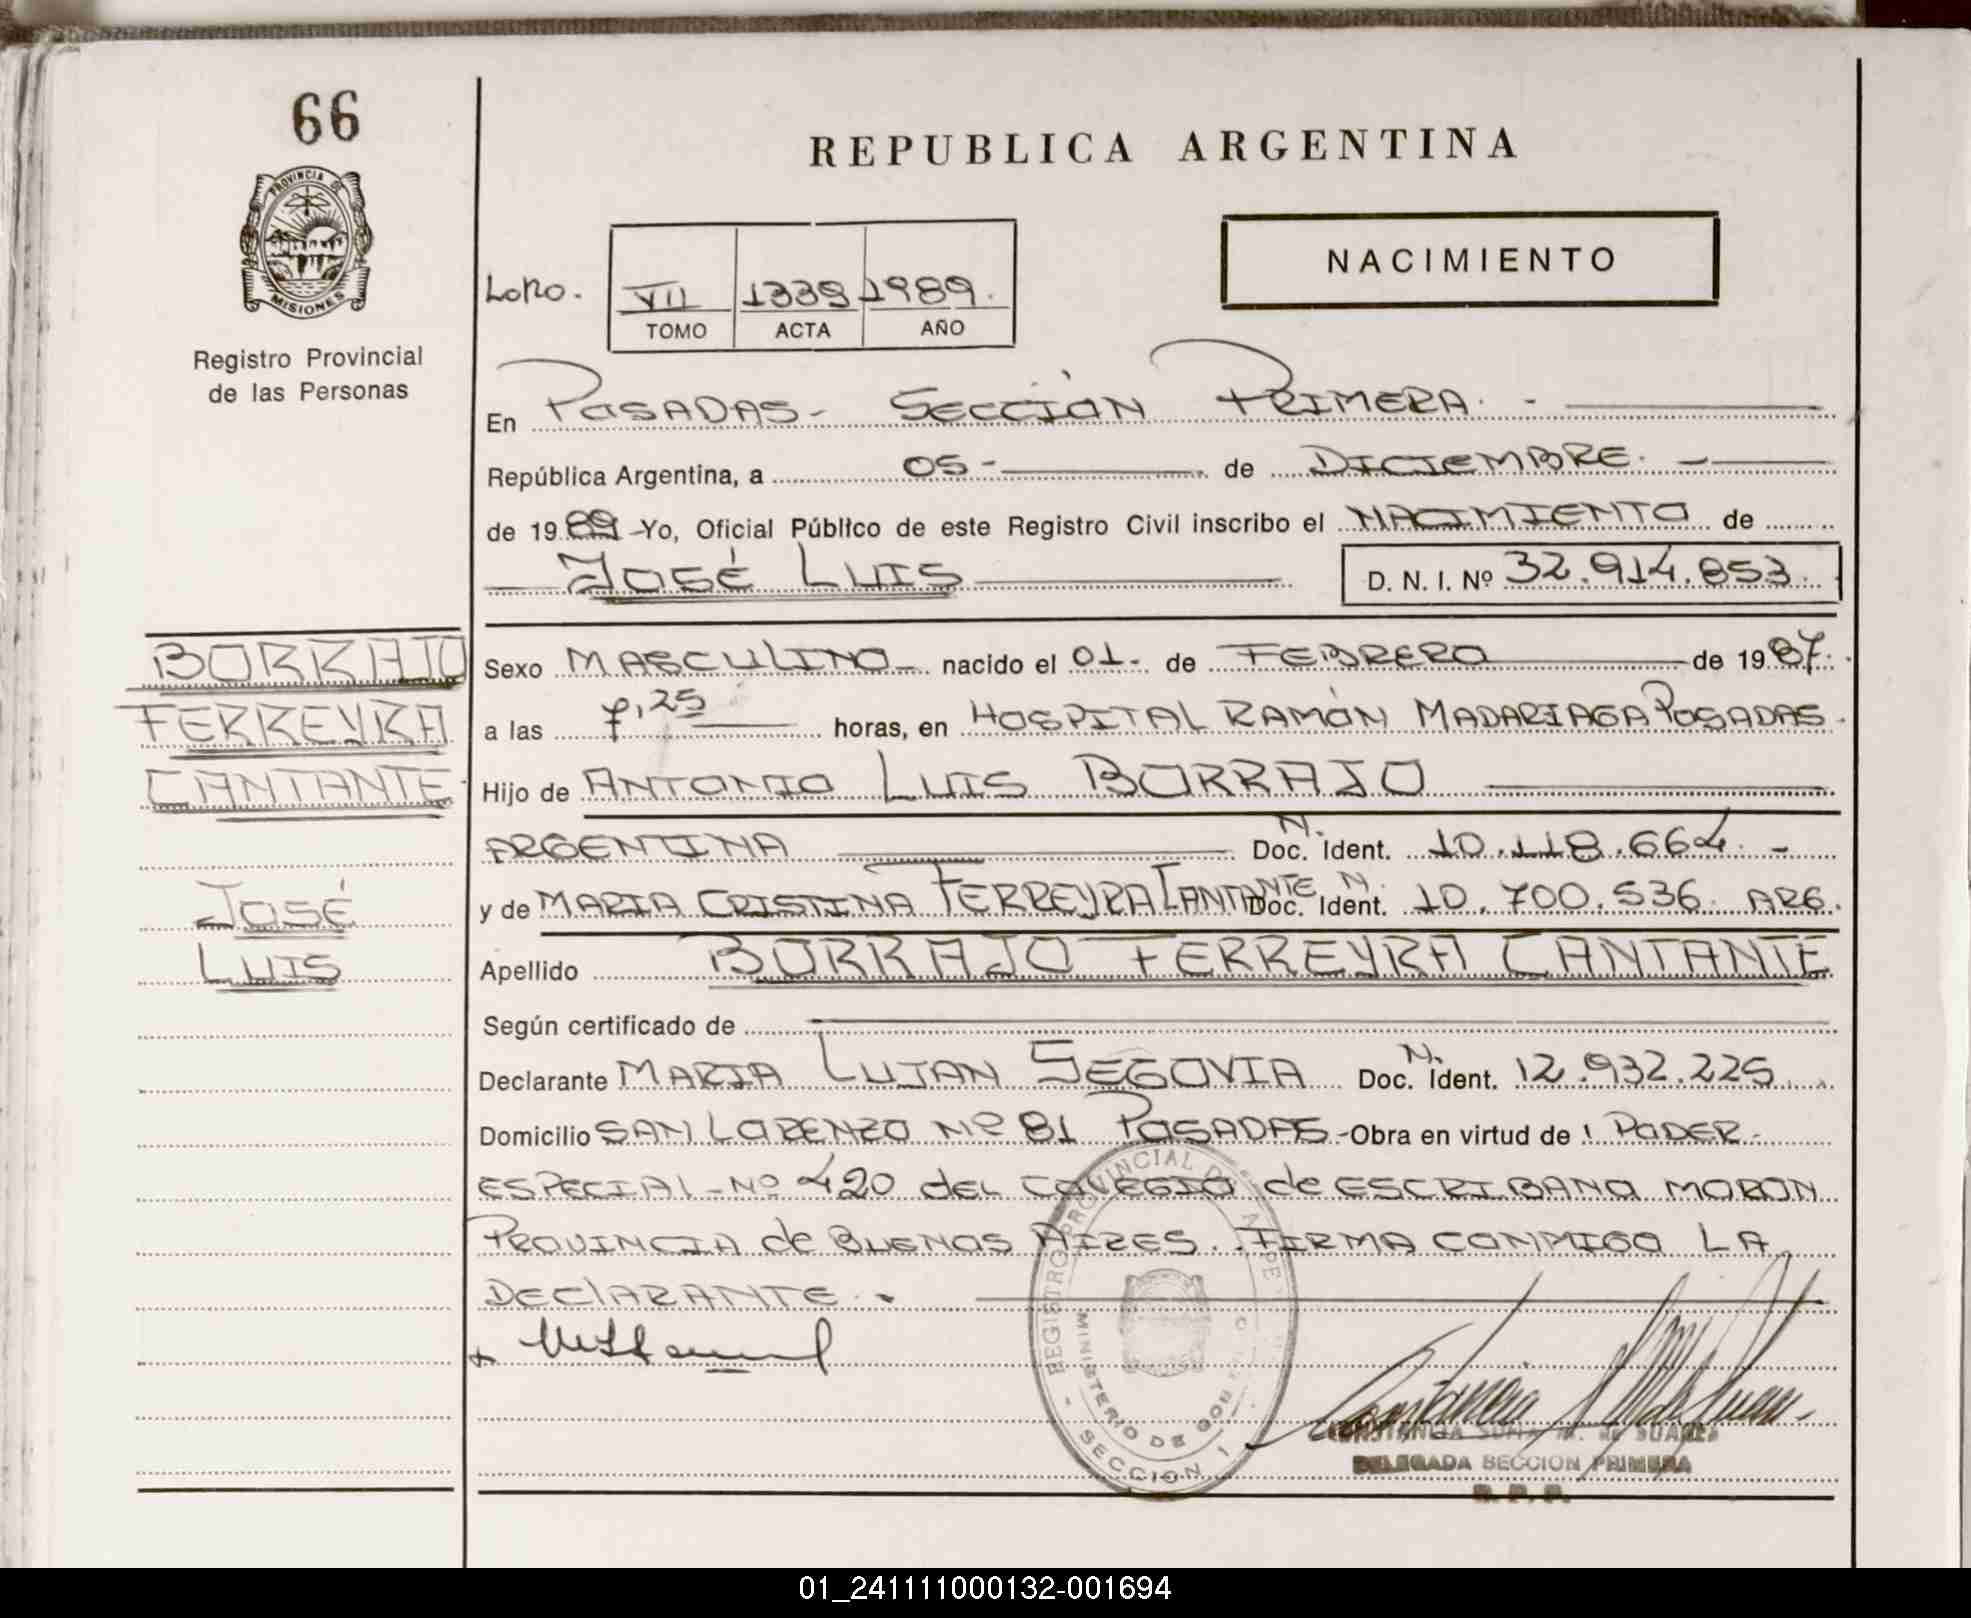 66
REPUBLICA ARGENTINA
PROVINCIA DE
MISIONES
NACIMIENTO
VII 1339 1989.
TOMO ACTA AÑO
Registro Provincial
de las Personas
En POSADAS - SECCIÓN PRIMERA. -
República Argentina, a 05 - de DICIEMBRE. -
de 1989 - Yo, Oficial Público de este Registro Civil inscribo el NACIMIENTO de
JOSÉ LUIS D. N. I. Nº 32.914.853.
BORRAJO
FERREYRA
CANTANTE
JOSÉ
LUIS
Sexo MASCULINO - nacido el 01. de FEBRERO de 1987.
a las 7,25 horas, en HOSPITAL RAMÓN MADARIAGA POSADAS.
Hijo de ANTONIO LUIS BORRAJO
ARGENTINA Doc. N. Ident. 10.118.664. -
y de MARIA CRISTINA FERREYRA CANTANTE Doc. N. Ident. 10.700.536. ARG.
Apellido BORRAJO FERREYRA CANTANTE
Según certificado de
Declarante MARIA LUJAN SEGOVIA Doc. N. Ident. 12.932.225.
Domicilio SAN LORENZO Nº 81 POSADAS - Obra en virtud de PODER
ESPECIAL - Nº 420 del COLEGIO de ESCRIBANO MORON
PROVINCIA de BUENOS AIRES. FIRMA CONMIGO LA
DECLARANTE.
REGISTRO PROVINCIAL DE
MINISTERIO DE GOB
SECCION 1
CONSTANCIA SOFIA M. de SUAREZ
DELEGADA SECCION PRIMERA
R. P. P.
01_241111000132-001694